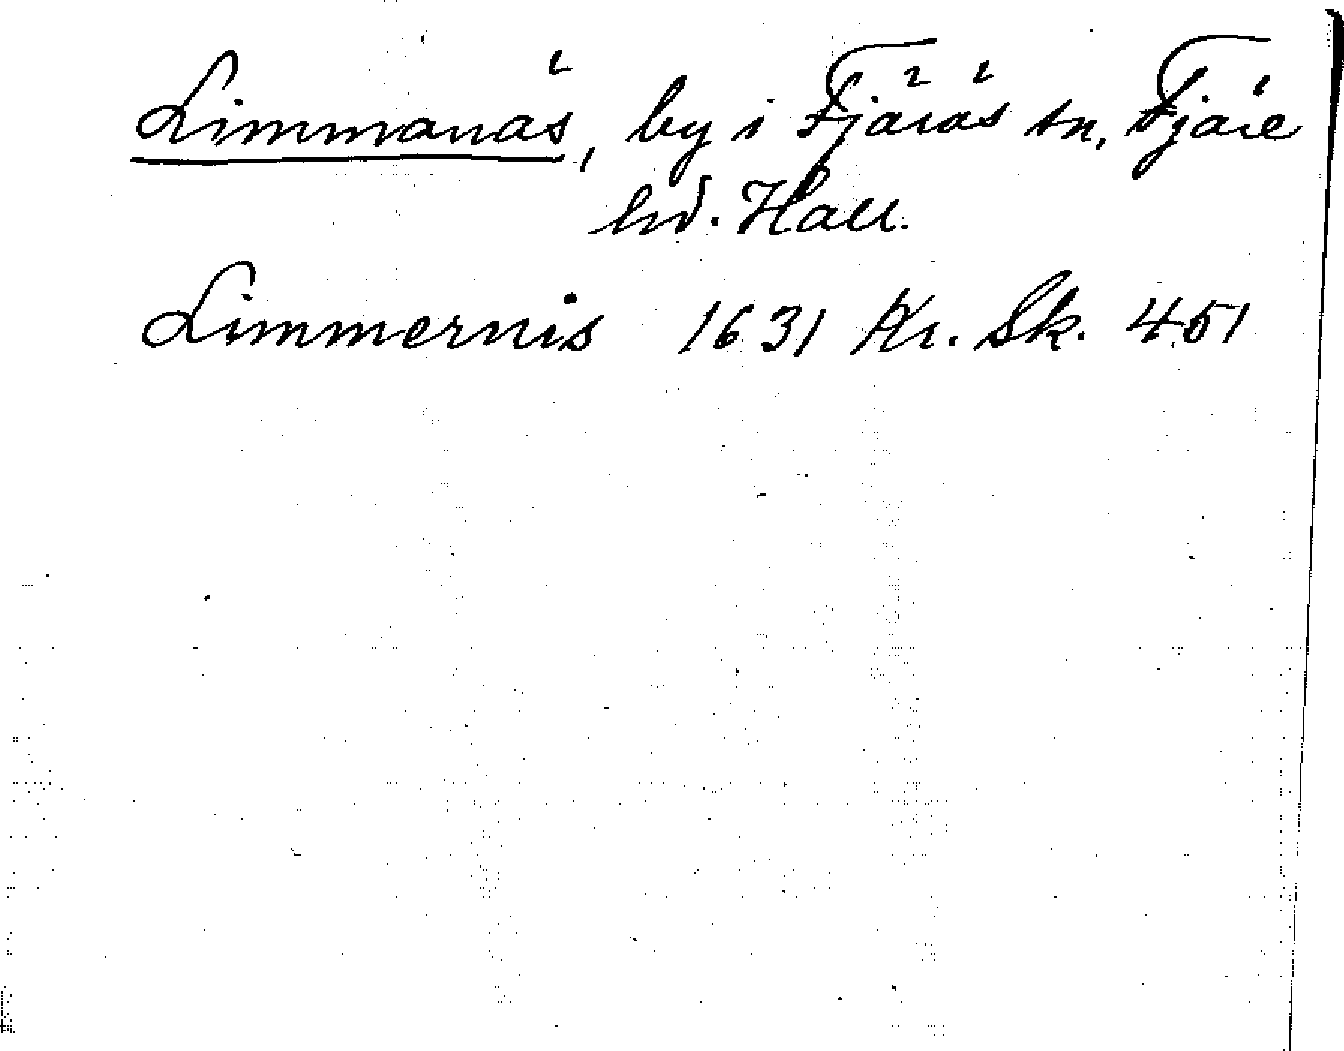 Limmanäs, by i Fjärås sn, Fjäre
hd. Hall.
Limmernis 1631 Kr. Sk. 451